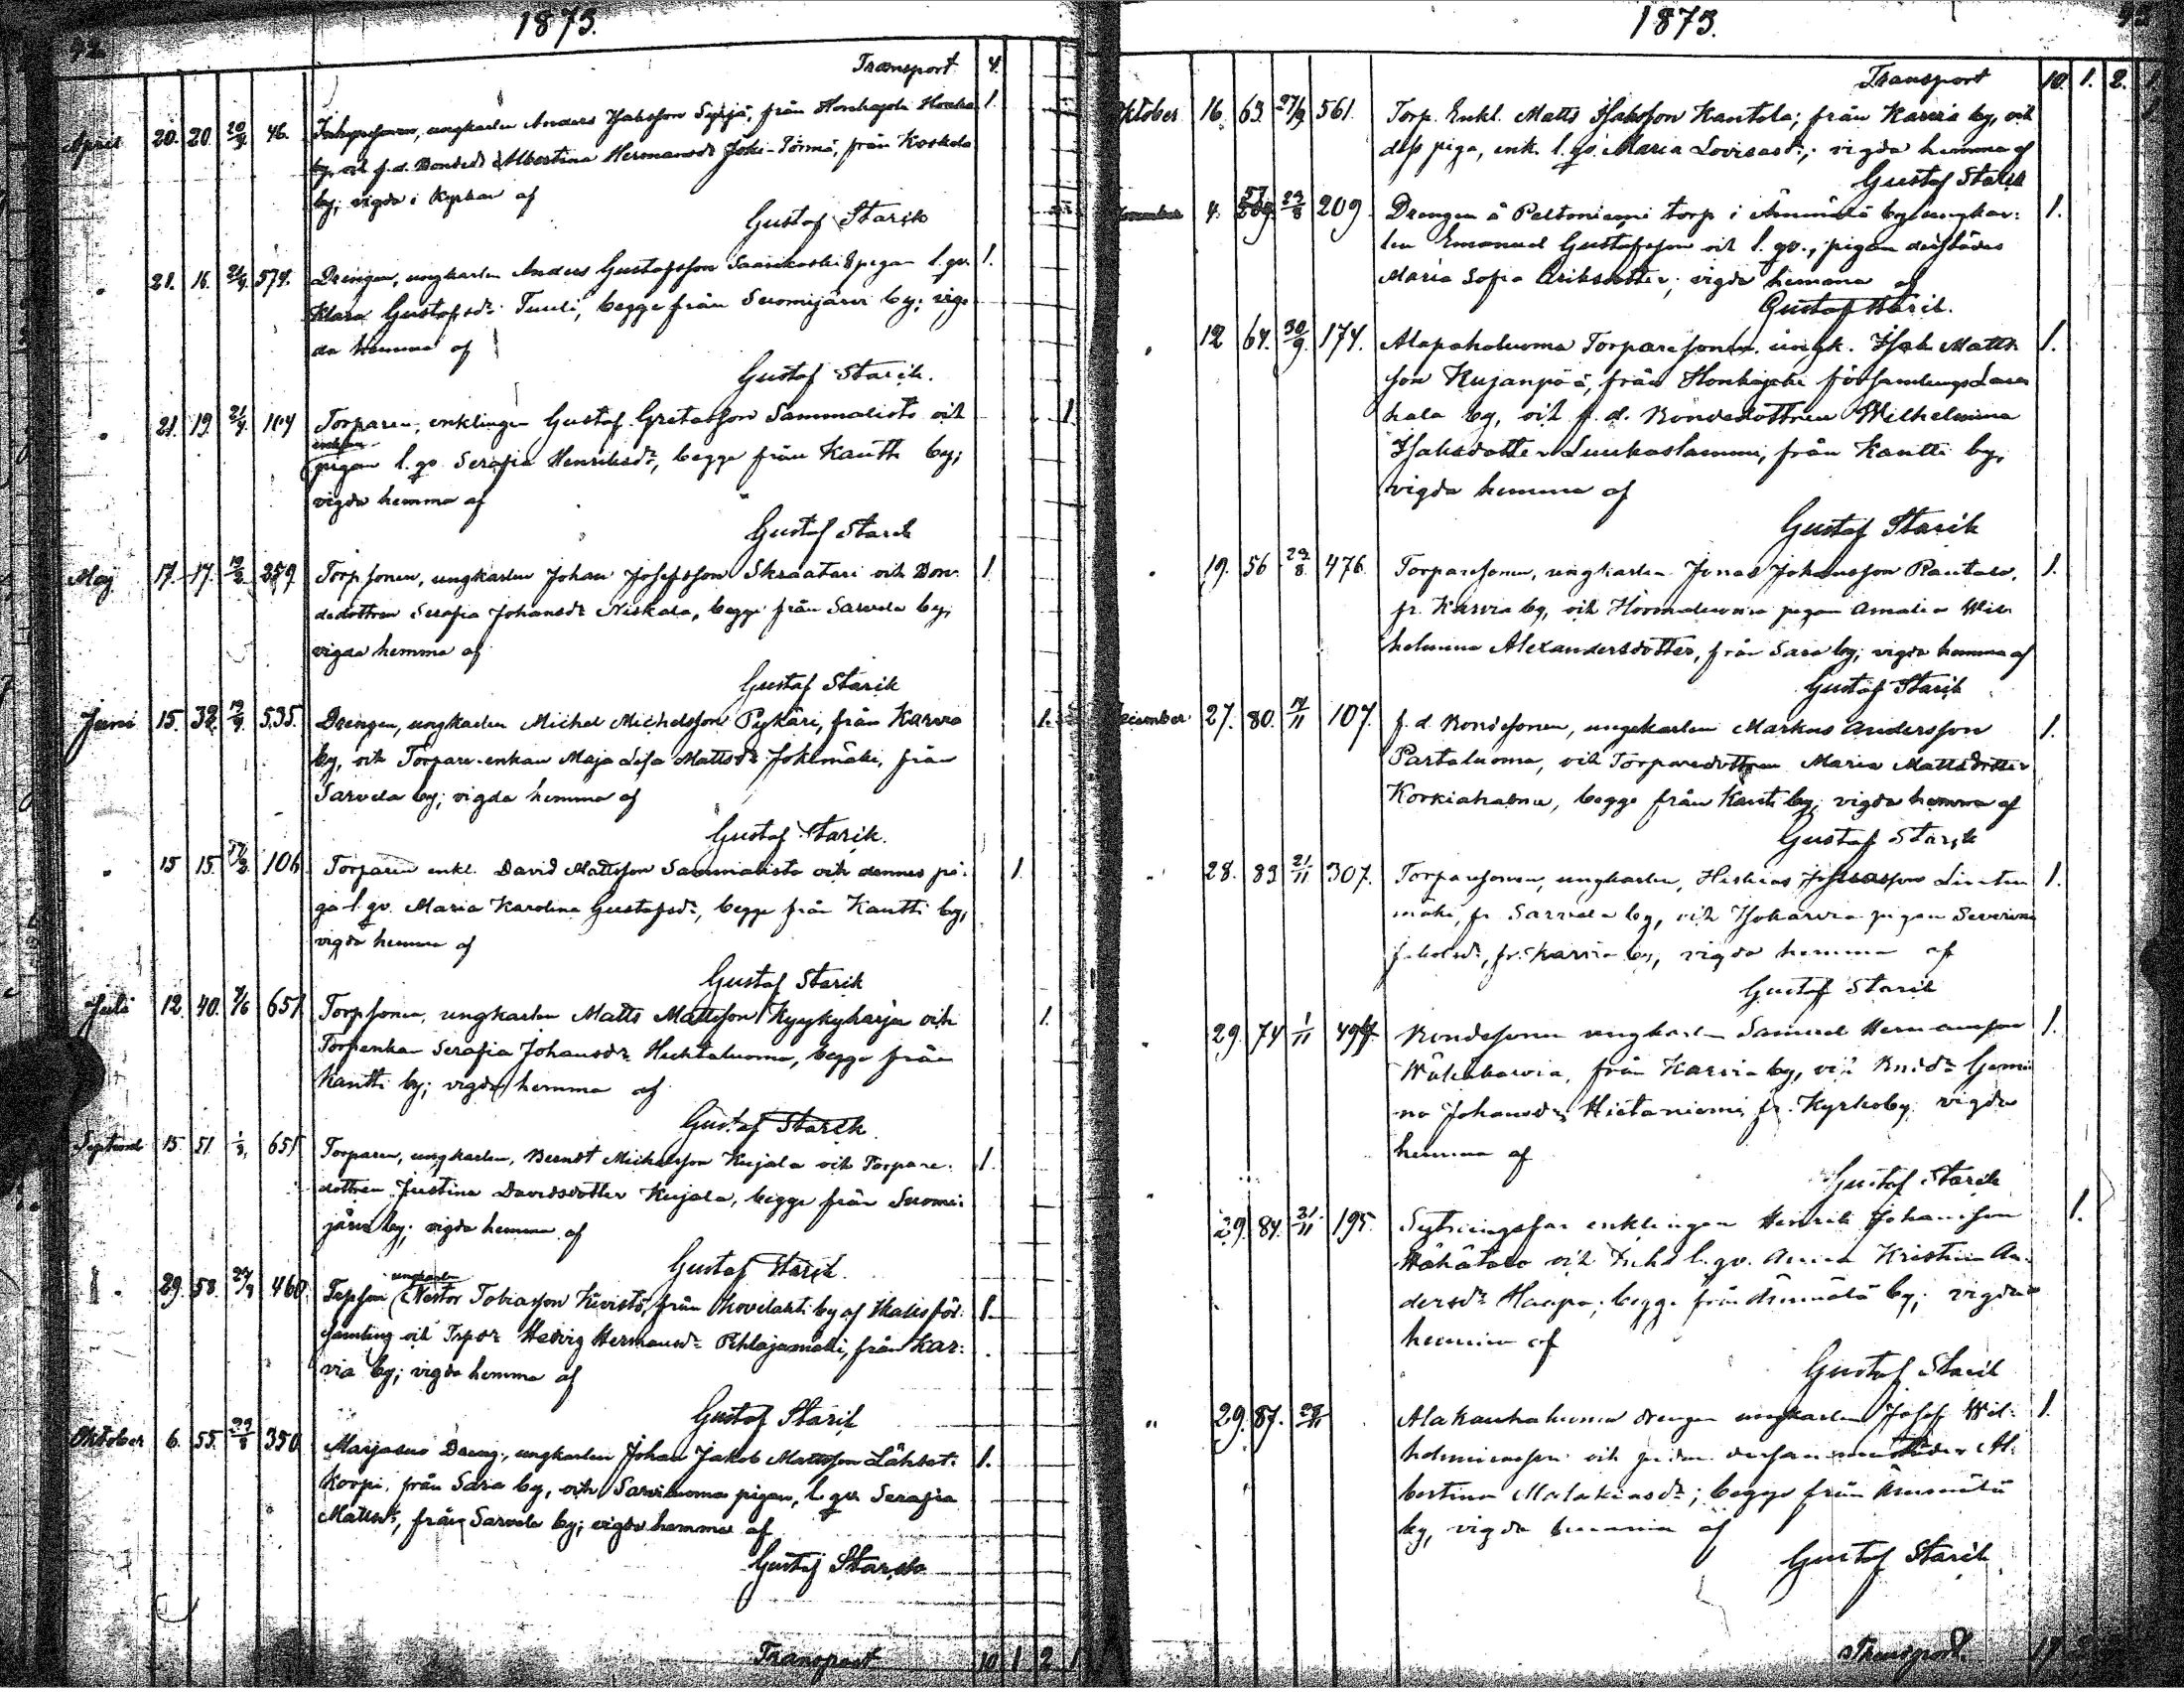 42
1873.
Transport 4.
April 20. 20. 20/4. 46. ungkarlen Anders Isaksson Syrjä, från Honkajoki 1.
by, och f. d. Bondedr Albertina Hermansdr Joki-Törmä, från Koskela
by; vigda i Kyrkan af
Gustaf Starik
" 21. 16. 21/4. 574. Drengen, ungkarlen Anders Gustafsson Saarikoski & pigan l. gv. 1.
Klara Gustafsdr Tuuli, begge från Suomijärvi by; vig-
da hemma af
Gustaf Starik.
" 21. 19. 21/4. 104 Torparen, enklingen Gustaf Gretasson Sammalisto och 1.
enkan
pigan l. gv. Serafia Henriksdr, begge från Kantti by;
vigda hemma af
Gustaf Starik
Maj 17. 17. 259 Torp.sonen, ungkarlen Johan Josefsson Skraatari och Bon- 1.
dedottren Serafia Johansdr Niskala, begge från Sarvela by,
vigda hemma af
Gustaf Starik
Juni 15. 32. 535. Drengen, ungkarlen Michel Michelsson Pykäri, från Karvia 1.
by, och Torpare-enkan Maja Lisa Mattsdr Jokimäki, från
Sarvela by; vigda hemma af
Gustaf Starik.
" 15 15. 106 Torparen enkl. David Mattsson Sammalisto och dennes pi- 1.
ga l. gv. Maria Karolina Gustafsdr, begge från Kantti by,
vigda hemma af
Gustaf Starik
Juli 12. 40. 7/6 651 Torpsonen, ungkarlen Matts Mattsson Kyykyharja och 1.
Torpenkan Serafia Johansdr Huhtaluoma, begge från
Kantti by; vigda hemma af
Gustaf Starik
Septemb 15. 51. 1/8. 651 Torparen, ungkarlen, Berndt Michelsson Kujala och Torpare- 1.
dottren Justina Davidsdotter Kujala, begge från Suomi-
järvi by; vigda hemma af
Gustaf Starik.
29. 58. 460 ungkarlen
Torpson Nestor Tobiasson Kivistö, från Kovilahti by af Ikalis för- 1.
samling och Trpdr Hedvig Hermansdr Pihlajamäki, från Kar-
via by; vigda hemma af
Gustaf Starik
Oktober 6. 55. 29/8 350 Marjasuo Dreng, ungkarlen Johan Jakob Mattsson Lähtet- 1.
korpi, från Sara by, och Sarviluoma pigan, l. gv. Serafia
Mattsdr, från Sarvela by; vigda hemma af
Gustaf Starik
Transport 10 1 2 1
1873.
Transport 10. 1. 2. 1.
Oktober 16. 63. 27/9 561. Torp. Enkl. Matts Isaksson Kantola; från Karvia by, och 1
dess piga, enk. l. gv. Maria Lovisasdr; vigda hemma af
Gustaf Starik
November 4. 57 29/8 209 Drengen å Peltoniemi torp i Ämmälä by ungkar- 1.
len Emanuel Gustafsson och l. gv., pigan derstädes
Maria Sofia Eriksdotter; vigda hemma af
Gustaf Starik.
" 12 64. 30/9. 174. Alapaholuoma Torparesonen, ungk. Isak Matts- 1.
son Kujanpää, från Honkajoki församlings Lauha-
la by, och f. d. Bondedottren Wilhelmina
Isaksdotter Luukaslammi, från Kantti by,
vigda hemma af
Gustaf Starik
" 19. 56 29/8. 476. Torparesonen, ungkarlen Jonas Johansson Rantala, 1.
fr. Karvia by, och pigan Amalia Wil-
helmina Alexandersdotter, från Sara by; vigda hemma af
Gustaf Starik
December 27. 80. 107. f. d. Bondesonen, ungkarlen Markus Andersson 1.
Partaluoma, och Torparedottren Maria Mattsdotter
Korkiakoski, begge från Kantti by, vigda hemma af
Gustaf Starik
" 28. 83 21/11 307. Torparesonen, ungkarlen, Hiskias Lintu- 1.
mäki, fr. Sarvela by, och Isokarvia pigan Severina
Jakobsdr, fr. Karvia by, vigda hemma af
Gustaf Starik
" 29. 74 1/11 494 Bondesonen ungkarlen Samuel Hermansson 1.
Wähäkarvia, från Karvia by, och Bndr Gemi-
na Johansdr Hietaniemi fr. Kyrkoby vigda
hemma af
Gustaf Starik
" 29. 84. 21/11 195. Sytningsfar enklingen Henrik Johansson 1.
Wähätalo och l. gv. Anna Kristina An-
dersdr Haapa, begge från Ämmälä by; vigda
hemma af
Gustaf Starik
" 29. 87. Alakauhaluoma drengen ungkarlen Josef Wil- 1.
helmsson och pigan Al-
bertina Malakiasdr; begge från Ämmälä
by, vigda hemma af
Gustaf Starik
Transport.